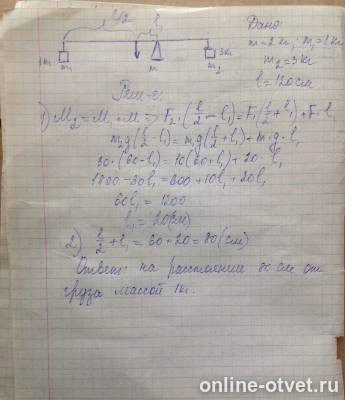 l/2 l₁ Дано:
m = 2 кг; m₁ = 1 кг
1кг m₁ m m₂ 3кг
m₂ = 3 кг
l = 120 см
Реш-е:
1) M₂ = M₁ + M => F₂·(l/2 - l₁) = F₁(l/2 + l₁) + F·l₁
m₂g(l/2 - l₁) = m₁g(l/2 + l₁) + m·g·l₁
30·(60 - l₁) = 10(60 + l₁) + 20·l₁
1800 - 30l₁ = 600 + 10l₁ + 20l₁
60l₁ = 1200
l₁ = 20(см)
2) l/2 + l₁ = 60 + 20 = 80 (см)
Ответ: на расстояние 80 см от
груза массой 1кг.
online-otvet.ru